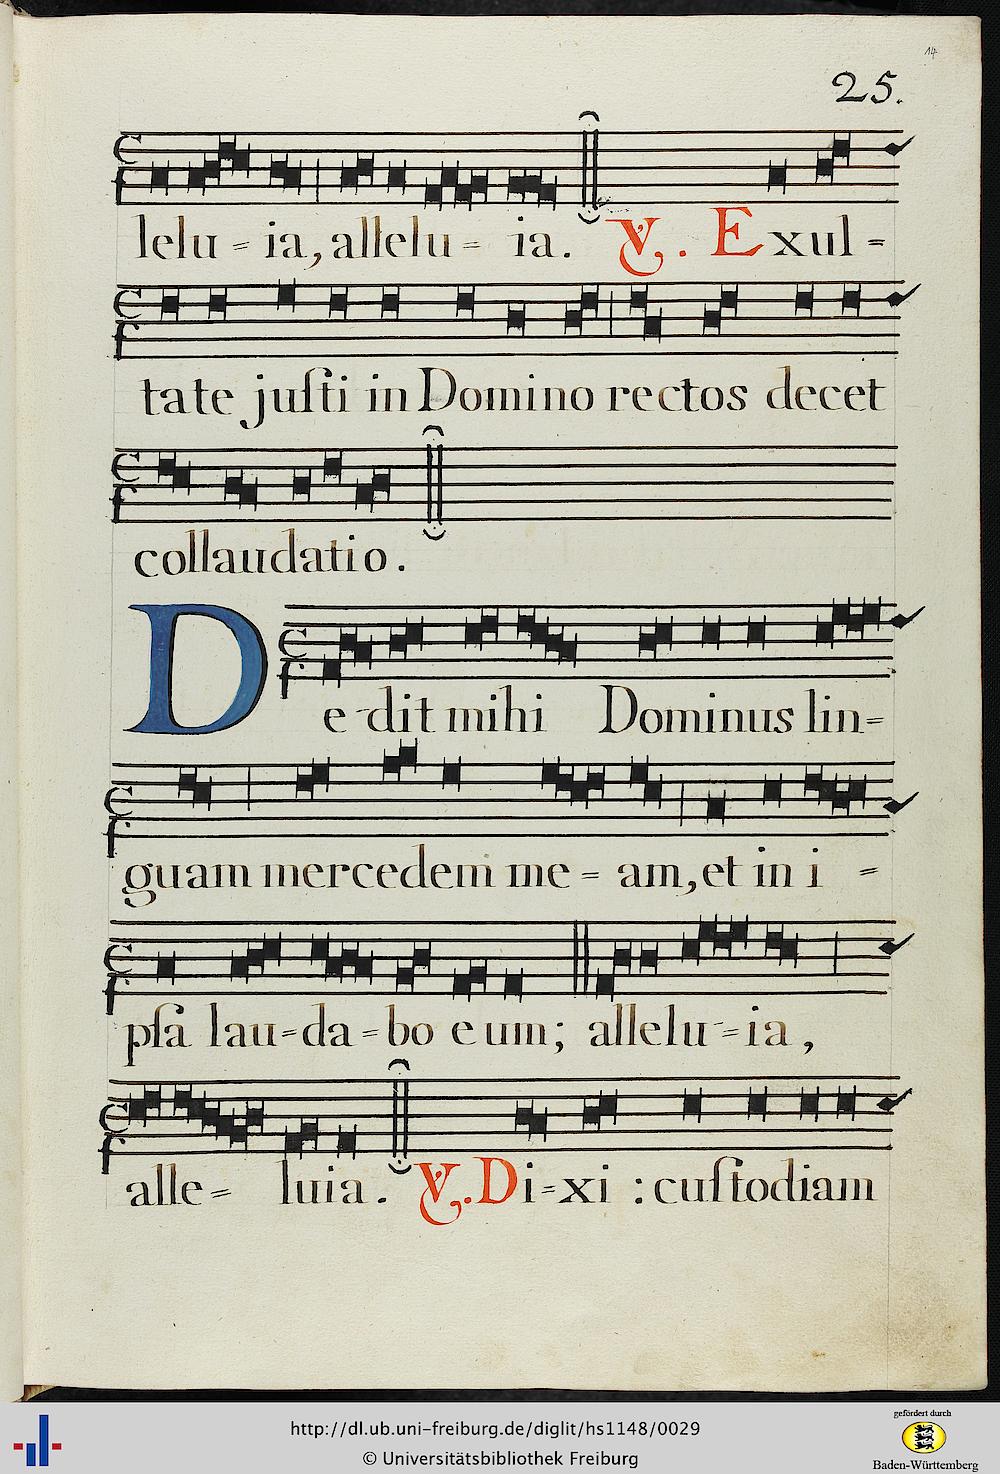 14
25.
lelu = ia, allelu = ia. V. Exul =
tate juſti in Domino rectos decet
collaudatio.
De-dit mihi Dominus lin=
guam mercedem me = am, et in i =
pſa lau=da=bo eum; allelu=ia,
alle= luia. V. Di=xi : cuſtodiam
http://dl.ub.uni-freiburg.de/diglit/hs1148/0029
© Universitätsbibliothek Freiburg
gefördert durch
Baden-Württemberg